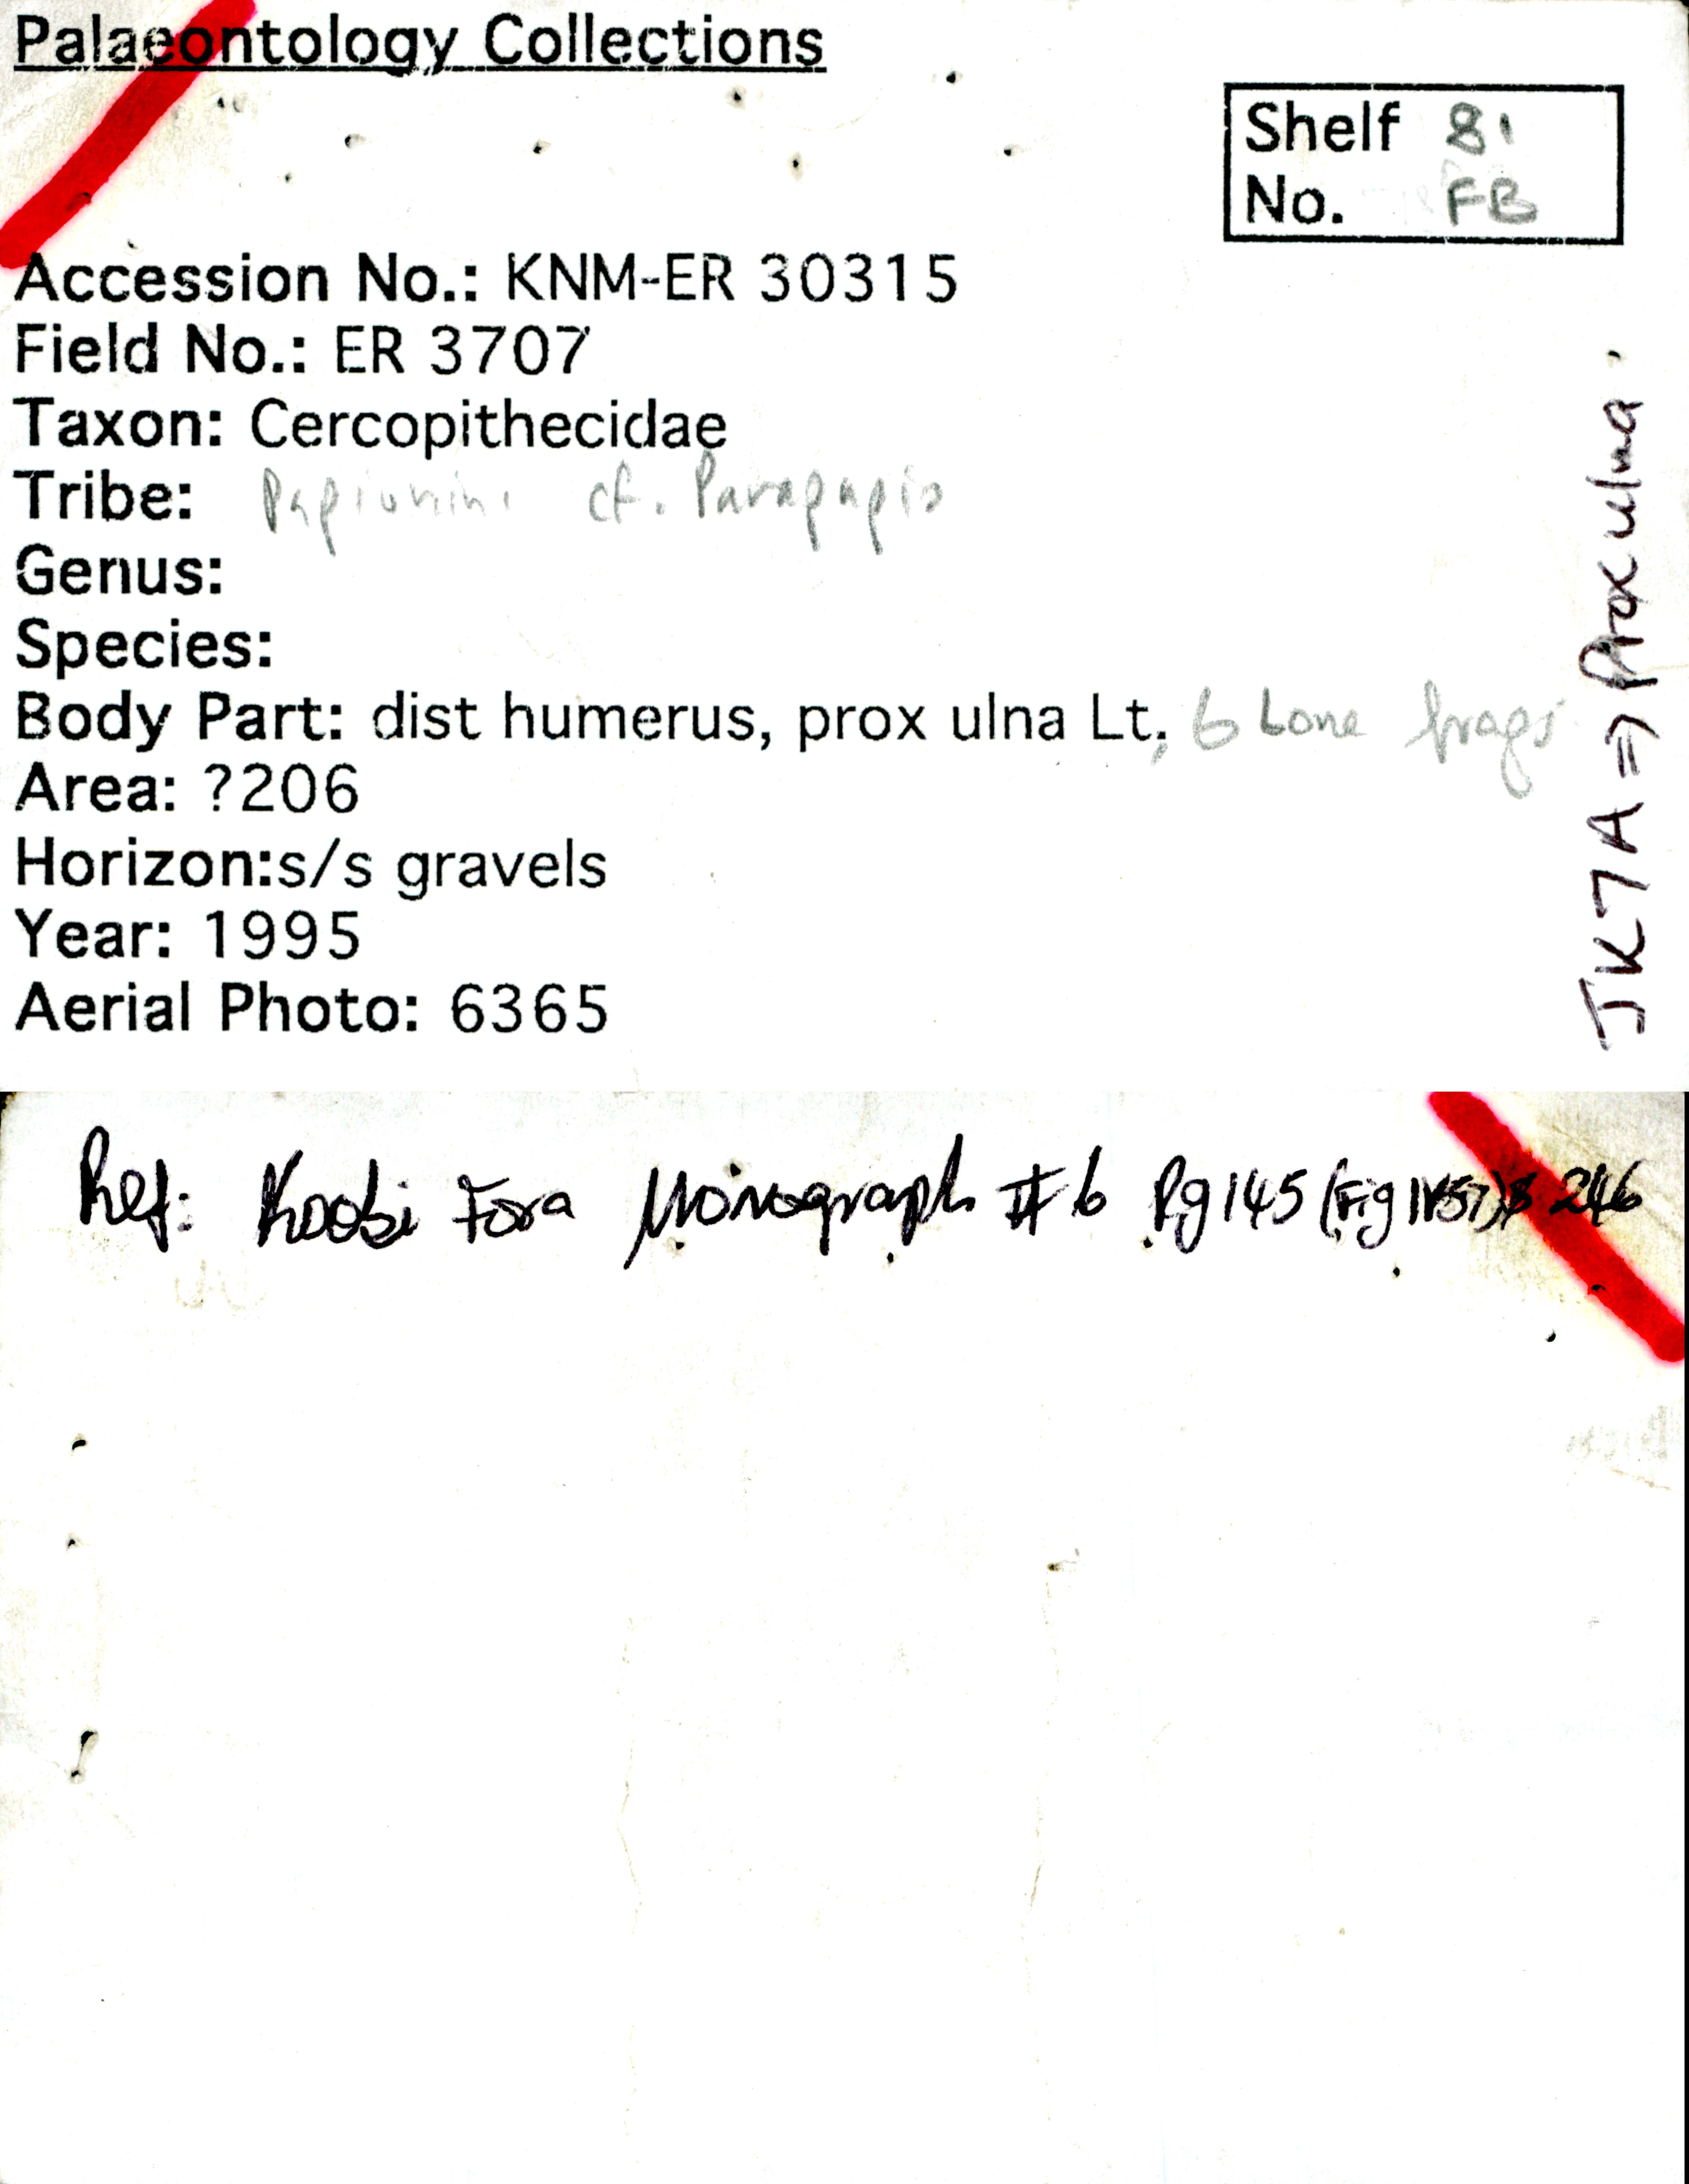 Palaeontology Collections
Shelf 81
No. FB
Accession No.: KNM-ER 30315
Field No.: ER 3707
Taxon: Cercopithecidae
Tribe: Papionini cf. Parapapio
Genus:
Species:
Body Part: dist humerus, prox ulna Lt, 6 bone frags
Area: ?206
Horizon:s/s gravels
Year: 1995
Aerial Photo: 6365
JK7A => Prox ulna.
Ref: Koobi Fora Monograph #6 Pg 145 (Fig 246